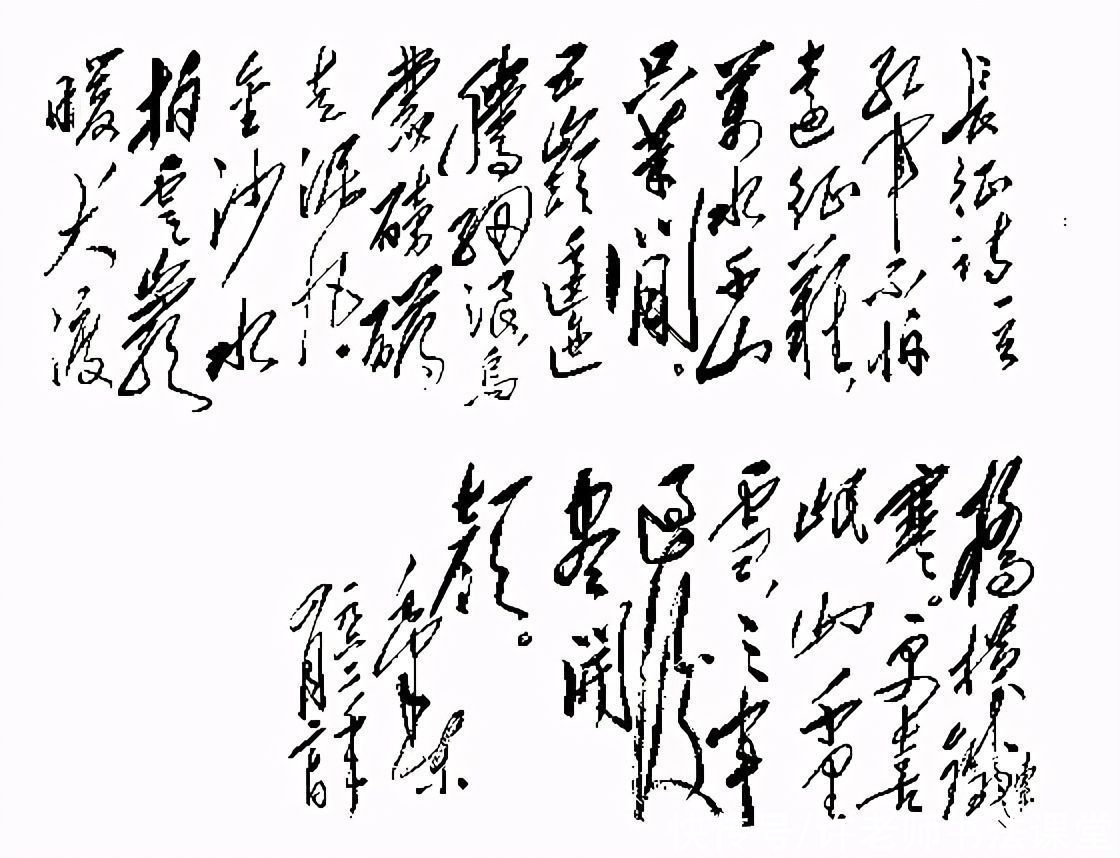 長征詩一首
紅軍不怕
遠征難，
萬水千山
只等閒。
五嶺逶迤
騰細浪，烏
蒙磅礴
走泥丸。
金沙水
拍雲巖
暖大渡
橋橫鐵索
寒。更喜
岷山千里
雪，三軍
過後
盡開
顏。
毛澤東
一九六二年